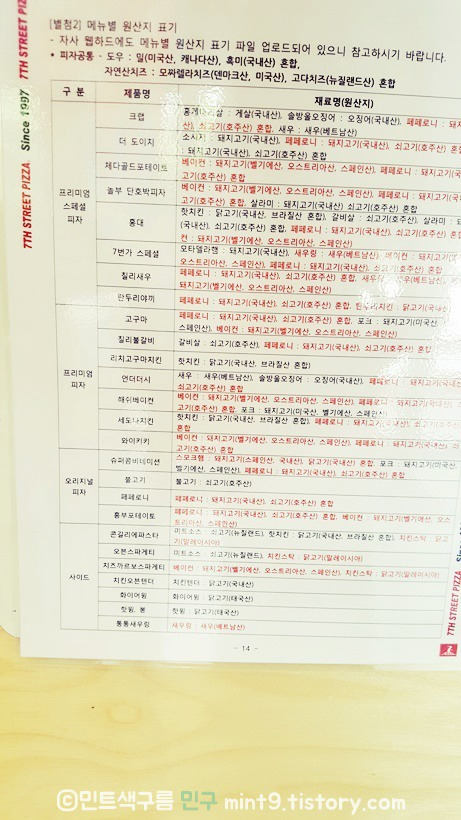 [별첨2] 메뉴별 원산지 표기
- 자사 웹하드에도 메뉴별 원산지 표기 파일 업로드되어 있으니 참고하시기 바랍니다.
• 피자공통 - 도우 : 밀(미국산, 캐나다산), 흑미(국내산) 혼합,
자연산치즈 : 모짜렐라치즈(덴마크산, 미국산), 고다치즈(뉴질랜드산) 혼합
구 분 제품명 재료명(원산지)
프리미엄 스페셜 피자
크랩
홍게다리살 : 게살(국내산), 솔방울오징어 : 오징어(국내산), 페페로니 : 돼지
쇠고기(호주산) 혼합, 새우 : 새우(베트남산)
더 도이치
소시지 : 돼지고기(국내산), 페페로니 : 돼지고기(국내산), 쇠고기(호주산) 혼합
: 돼지고기(국내산), 쇠고기(호주산) 혼합
체다골드포테이토
베이컨 : 돼지고기(벨기에산, 오스트리아산, 스페인산), 페페로니 : 돼지고기(국
고기(호주산) 혼합
놀부 단호박피자
베이컨 : 돼지고기(벨기에산, 오스트리아산, 스페인산), 페페로니 : 돼지고기(국
고기(호주산) 혼합, 살라미 : 돼지고기(국내산), 쇠고기(호주산) 혼합
홍대
핫치킨 : 닭고기(국내산, 브라질산 혼합), 갈비살 : 쇠고기(호주산), 살라미 :
(국내산), 쇠고기(호주산) 혼합, 페페로니 : 돼지고기(국내산), 쇠고기(호주산) 혼합,
컨 : 돼지고기(벨기에산, 오스트리아산, 스페인산)
7번가 스페셜
모타델라햄 : 돼지고기(국내산), 새우링 : 새우(베트남산), 베이컨 : 돼지고기
오스트리아산, 스페인산), 페페로니 : 돼지고기(국내산), 쇠고기(호주산) 혼합
칠리새우
페페로니 : 돼지고기(국내산), 쇠고기(호주산) 혼합, 새우링 : 새우(베트남산), 베
돼지고기(벨기에산, 오스트리아산, 스페인산)
탄두리야끼
페페로니 : 돼지고기(국내산), 쇠고기(호주산) 혼합, 탄두리치킨 : 닭고기(국내
프리미엄 피자
고구마
페페로니 : 돼지고기(국내산), 쇠고기(호주산) 혼합, 포크 : 돼지고기(미국산,
스페인산), 베이컨 : 돼지고기(벨기에산, 오스트리아산, 스페인산)
칠리불갈비
갈비살 : 쇠고기(호주산), 페페로니 : 돼지고기(국내산), 쇠고기(호주산) 혼합
리치고구마치킨
핫치킨 : 닭고기(국내산, 브라질산 혼합)
언더더시
새우 : 새우(베트남산), 솔방울오징어 : 오징어(국내산), 페페로니 : 돼지고기(국내
쇠고기(호주산) 혼합
해쉬베이컨
베이컨 : 돼지고기(벨기에산, 오스트리아산, 스페인산), 페페로니 : 돼지고기(국내산),
고기(호주산) 혼합, 포크 : 돼지고기(미국산, 벨기에산, 스페인산)
세도나치킨
핫치킨 : 닭고기(국내산, 브라질산 혼합), 페페로니 : 돼지고기(국내산), 쇠고기(호주산)
혼합
와이키키
베이컨 : 돼지고기(벨기에산, 오스트리아산, 스페인산), 페페로니 : 돼지고기(국내산),
고기(호주산) 혼합
오리지널 피자
슈퍼콤비네이션
스모크햄 : 돼지고기(스페인산, 국내산), 닭고기(국내산) 혼합, 포크 : 돼지고기(미국산
벨기에산, 스페인산), 페페로니 : 돼지고기(국내산), 쇠고기(호주산) 혼합
불고기
불고기 : 쇠고기(호주산)
페페로니
페페로니 : 돼지고기(국내산), 쇠고기(호주산) 혼합
흥부포테이토
페페로니 : 돼지고기(국내산), 쇠고기(호주산) 혼합, 베이컨 : 돼지고기(벨기에산, 오스
트리아산, 스페인산)
사이드
콘길리에파스타
미트소스 : 쇠고기(뉴질랜드), 핫치킨 : 닭고기(국내산, 브라질산 혼합), 치킨스탁 : 닭고
기(말레이시아)
오븐스파게티
미트소스 : 쇠고기(뉴질랜드), 치킨스탁 : 닭고기(말레이시아)
치즈까르보스파게티
베이컨 : 돼지고기(벨기에산, 오스트리아산, 스페인산), 치킨스탁 : 닭고기(말레이시아)
치킨오븐텐더
치킨텐더 : 닭고기(국내산)
화이어윙
화이어윙 : 닭고기(태국산)
핫윙, 봉
핫윙 : 닭고기(태국산)
통통새우링
새우링 : 새우(베트남산)
- 14 -
7TH STREET PIZZA Since 1997 7TH STREET PIZ
7TH STREET PIZZA Since
©민트색구름 민구 mint9.tistory.com